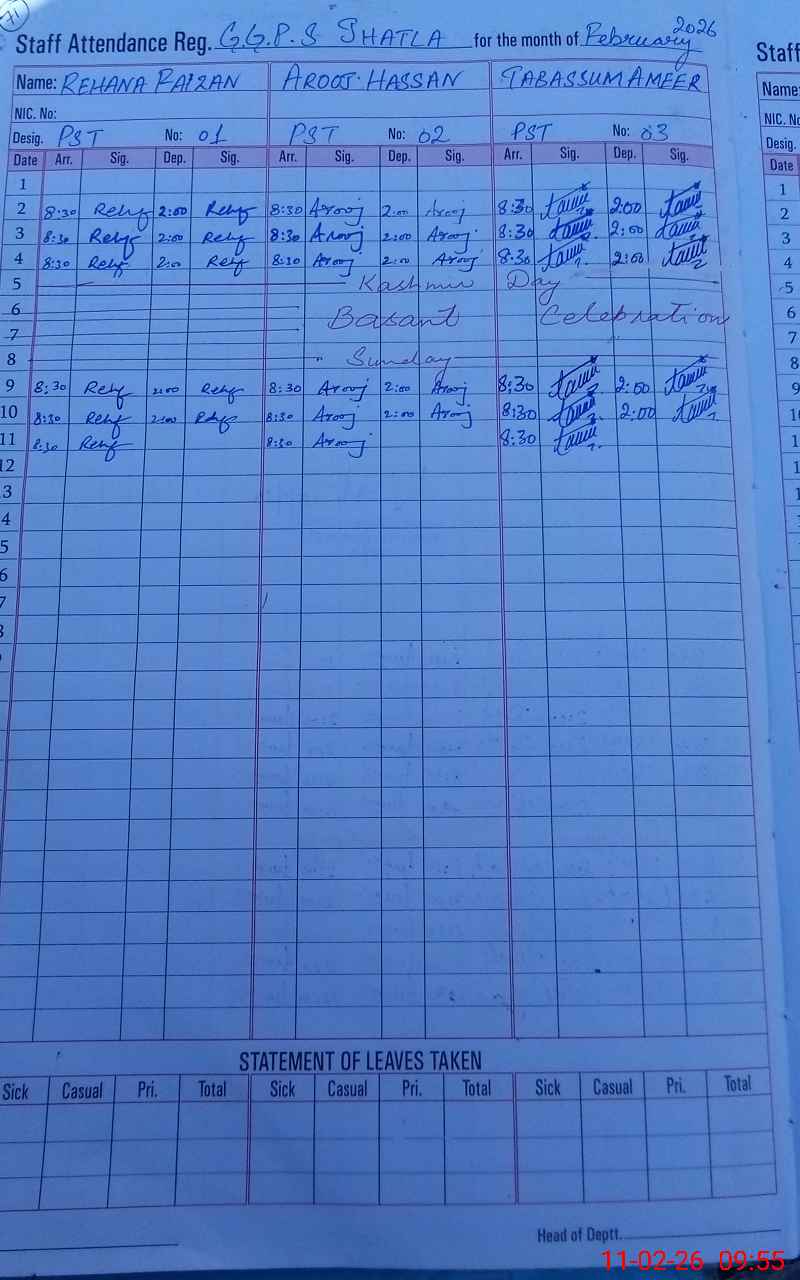 71
Staff Attendance Reg. G.G.P.S JHATLA for the month of February 2026
Staff
Name: REHANA FAIZAN AROOJ HASSAN TABASSUM AMEER
Name:
NIC. No:
NIC. No
Desig. PST No: 01 PST No: 02 PST No: 03
Desig.
Date Arr. Sig. Dep. Sig. Arr. Sig. Dep. Sig. Arr. Sig. Dep. Sig.
Date
1
2 8:30 Rehf 2:00 Rehf 8:30 Arooj 2:00 Arooj 8:30 2:00
3 8:30 Rehf 2:00 Rehf 8:30 Arooj 2:00 Arooj 8:30 2:00
4 8:30 Rehf 2:00 Rehf 8:30 Arooj 2:00 Arooj 8:30 2:00
5 Kashmir Day
6 Basant Celebration
7
8 Sunday
9 8:30 Rehf 2:00 Rehf 8:30 Arooj 2:00 Arooj 8:30 2:00
10 8:30 Rehf 2:00 Rehf 8:30 Arooj 2:00 Arooj 8:30 2:00
11 8:30 Rehf 8:30 Arooj 8:30
12
3
4
5
6
7
1
2
3
4
5
6
7
8
9
STATEMENT OF LEAVES TAKEN
Sick Casual Pri. Total Sick Casual Pri. Total Sick Casual Pri. Total
Head of Deptt.
11-02-26 09:55